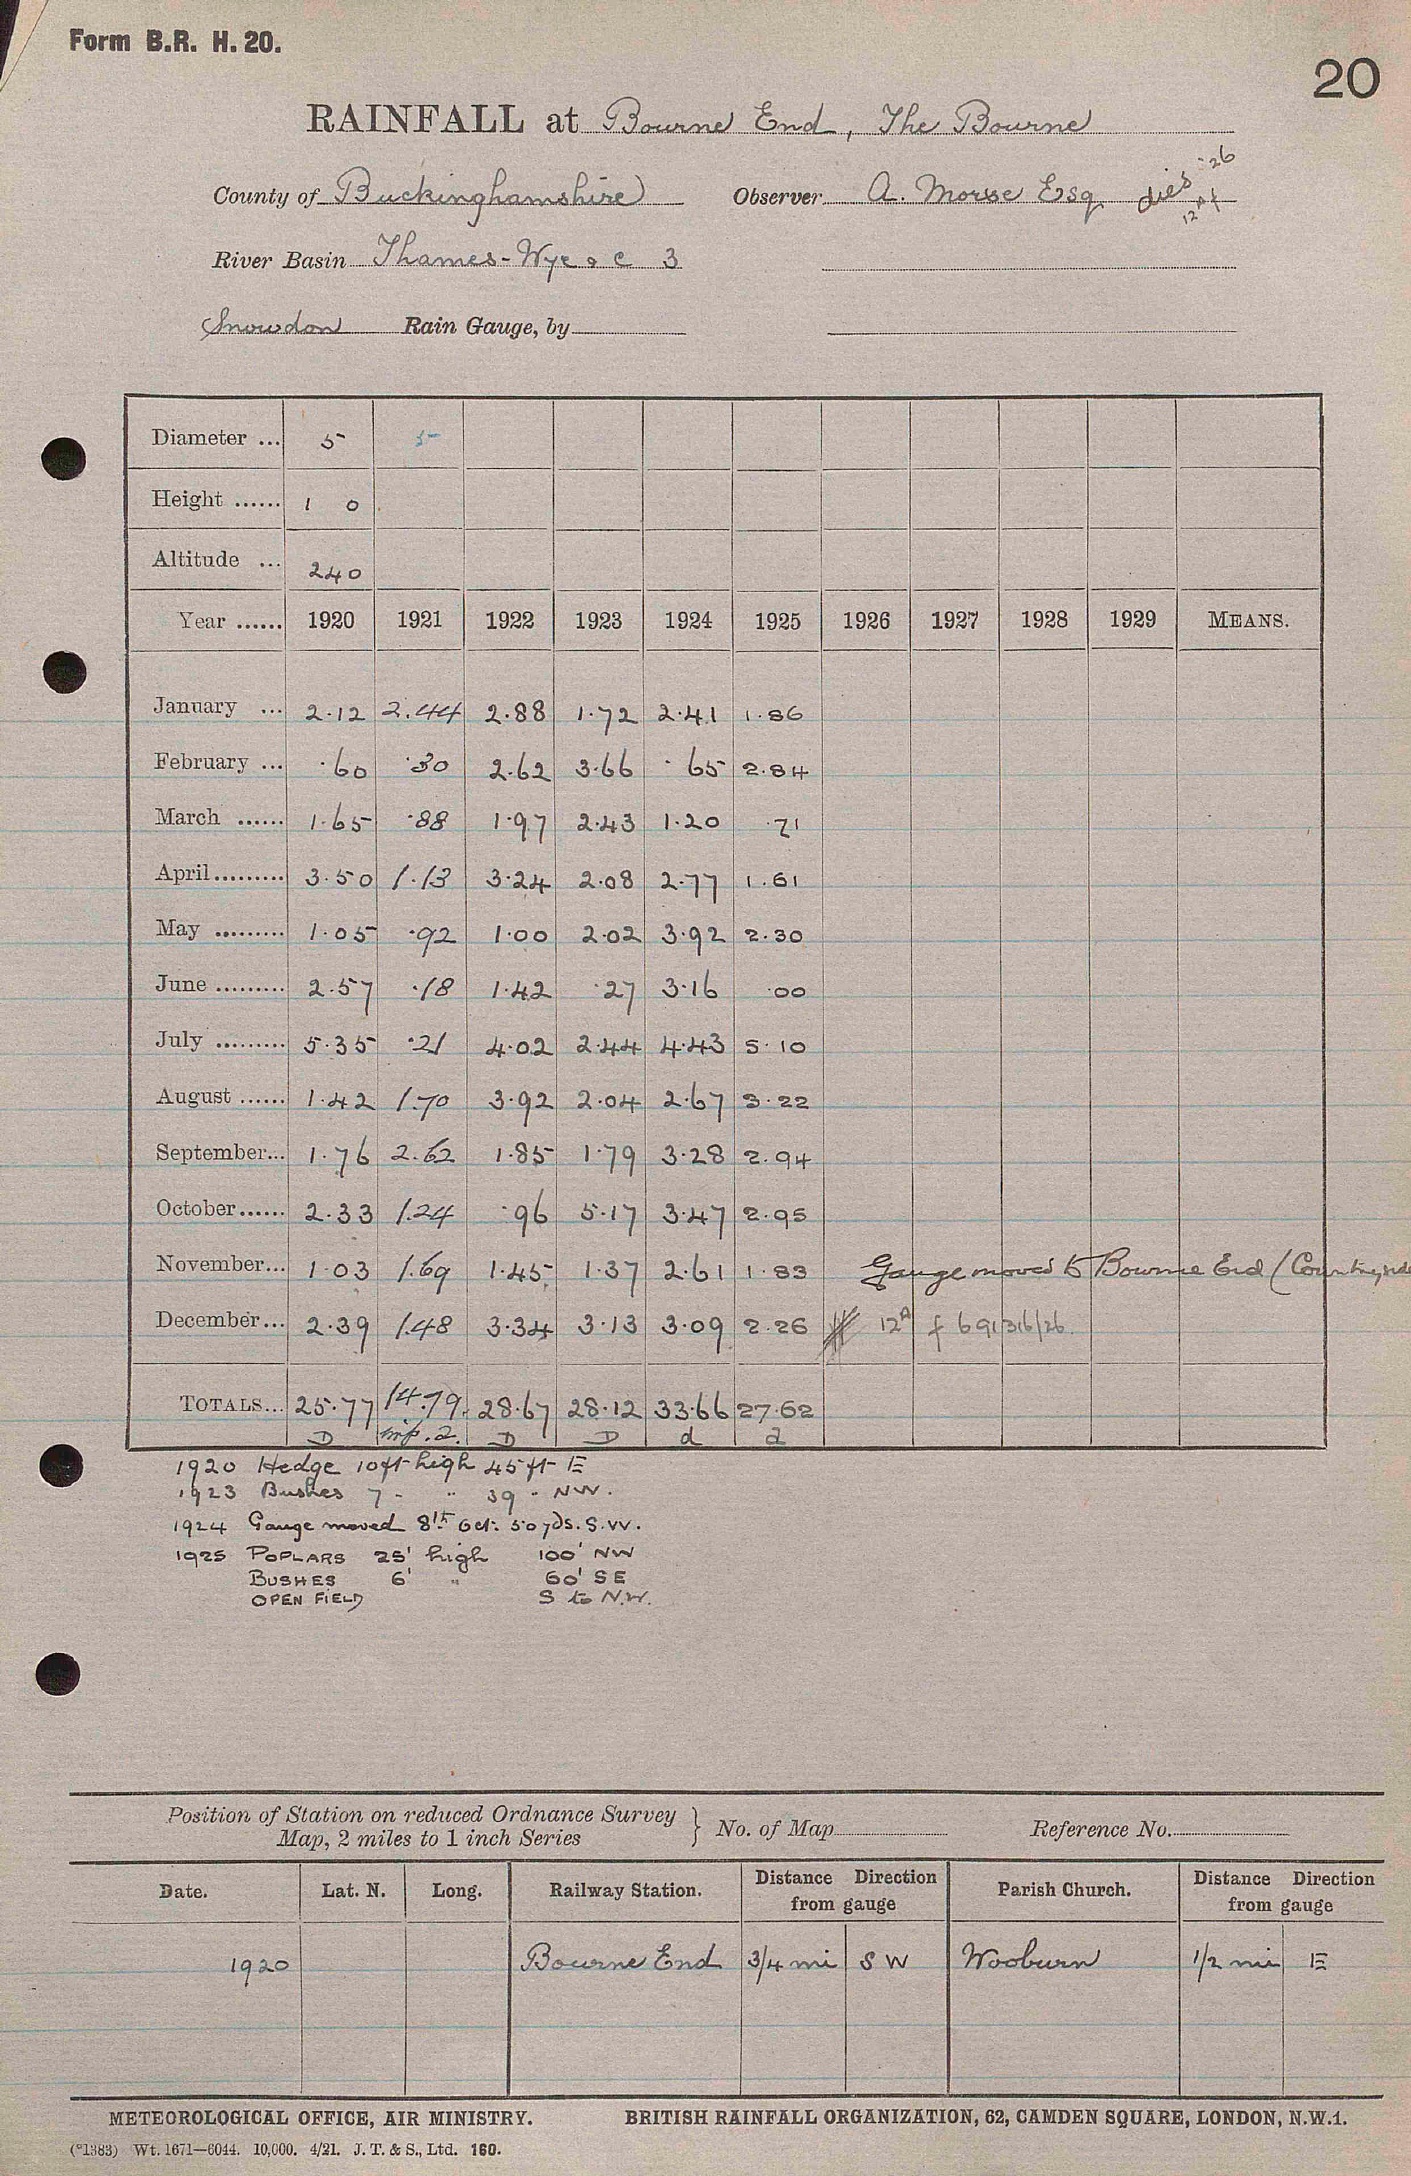 Form B.R. H. 20.
20
RAINFALL at Bourne End, The Bourne
County of Buckinghamshire Observer A. Morse Esq. dies '26
River Basin Thames-Wye & c 3 12A f
Snowdon Rain Gauge, by
Diameter ... 5 5
Height ...... 1 0
Altitude ... 240
Year ...... 1920 1921 1922 1923 1924 1925 1926 1927 1928 1929 MEANS.
January ... 2.12 2.44 2.88 1.72 2.41 1.86
February ... .60 .30 2.62 3.66 .65 2.84
March ...... 1.65 .88 1.97 2.43 1.20 .71
April ......... 3.50 1.13 3.24 2.08 2.77 1.61
May ......... 1.05 .92 1.00 2.02 3.92 2.30
June ......... 2.57 .18 1.42 .27 3.16 .00
July ......... 5.35 .21 4.02 2.44 4.43 5.10
August ...... 1.42 1.70 3.92 2.04 2.67 3.22
September... 1.76 2.62 1.85 1.79 3.28 2.94
October...... 2.33 1.24 .96 5.17 3.47 2.95
November... 1.03 1.69 1.45 1.37 2.61 1.83 Gauge moved to Bourne End (Countryside
December... 2.39 1.48 3.34 3.13 3.09 2.26 12A f 691316/26
TOTALS... 25.77 14.79 28.67 28.12 33.66 27.62
D mp.2. D D d d
1920 Hedge 10ft high 45ft E
1923 Bushes 7 - " 39 " NW.
1924 Gauge moved 8th Oct. 50 yds. S.W.
1925 POPLARS 25' high 100' NW
BUSHES 6' " 60' SE
OPEN FIELD S to N.W.
Position of Station on reduced Ordnance Survey
Map, 2 miles to 1 inch Series } No. of Map Reference No.
Date. Lat. N. Long. Railway Station. Distance Direction from gauge Parish Church. Distance Direction from gauge
1920 Bourne End 3/4 mi S W Wooburn 1/2 mi E
METEOROLOGICAL OFFICE, AIR MINISTRY. BRITISH RAINFALL ORGANIZATION, 62, CAMDEN SQUARE, LONDON, N.W.1.
(*1383) Wt. 1671—6044. 10,000. 4/21. J. T. & S., Ltd. 160.